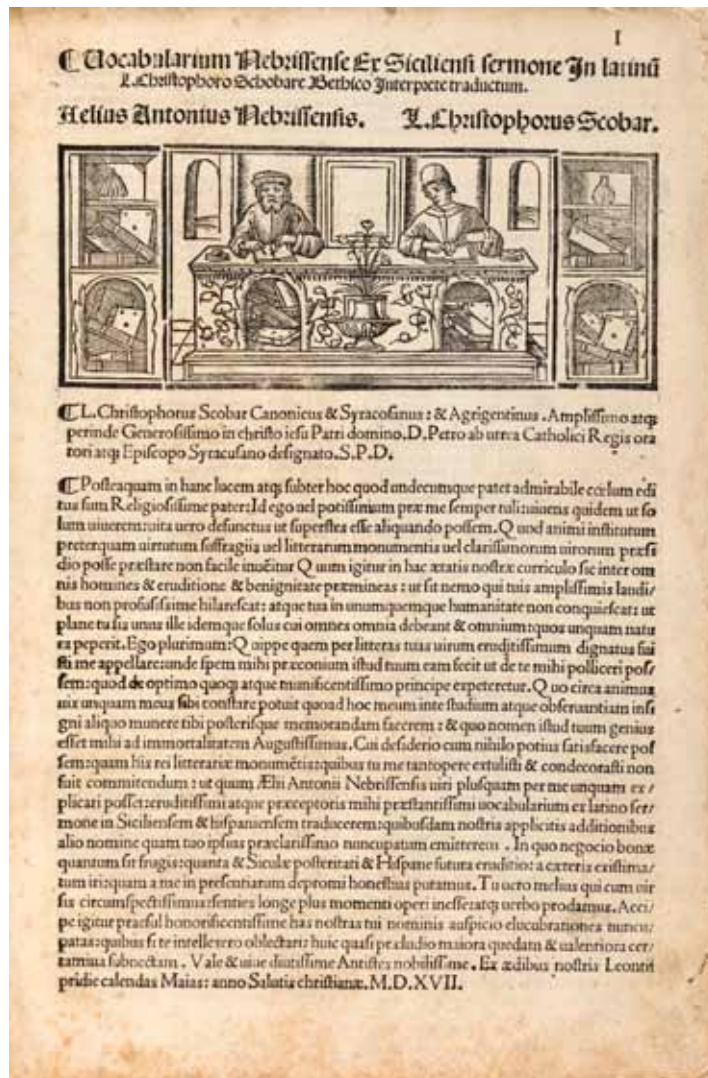 I
⸿ Uocabularium Nebrissense Ex Siciliensi sermone In latinū
L. Christophoro Schobare Bethico Interprete traductum.
Aelius Antonius Nebrissensis. L. Christophorus Scobar.
⸿ L. Christophorus Scobar Canonicus & Syracosanus: & Agrigentinus. Amplissimo atq;
perinde Generosissimo in christo iesu Patri domino. D. Petro ab urrea Catholici Regis ora
tori atq; Episcopo Syracusano designato. S. P. D.
⸿ Posteaquam in hanc lucem atq; subter hoc quod undecumque patet admirabile cœlum edi
tus sum Religiosissime pater: Id ego uel potissimum præ me semper tuli: uiuens quidem ut so
lum uiuerem: uita uero defunctus ut superstes esse aliquando possem. Quod animi institutum
preterquam uirtutum suffragiis uel litterarum monumentis uel clarissimorum uirorum præsi
dio posse præstare non facile inuēitur Quum igitur in hac ætatis nostræ curriculo sic inter om
nis homines & eruditione & benignitate præmineas: ut sit nemo qui tuis amplissimis laudi/
bus non profusissime hilarescat: atque tua in unumquemque humanitate non conquiescat: ut
plane tu sis unus ille idemque solus cui omnes omnia debeant & omnium: quos unquam natu
ra peperit. Ego plurimum: Quippe quem per litteras tuas uirum eruditissimum dignatus fui
sti me appellare: unde spem mihi præconium istud tuum eam fecit ut de te mihi polliceri pos/
sem: quod de optimo quoq; atque munificentissimo principe expeteretur. Quo circa animus
uix unquam meus sibi constare potuit quoad hoc meum in te studium atque obseruantiam insi
gni aliquo munere tibi posterisque memorandam facerem: & quo nomen istud tuum genius
esset mihi ad immortalitatem Augustissimus. Cui desiderio cum nihilo potius satisfacere pos
sem: quam his rei litterariæ monumētis: quibus tu me tantopere extulisti & condecorasti non
fuit commitendum: ut quum Ælii Antonii Nebrissensis uiri plusquam per me unquam ex/
plicari posset: eruditissimi atque præceptoris mihi præstantissimi uocabularium ex latino ser/
mone in Siciliensem & hispaniensem traducerem: quibusdam nostris applicitis additionibus
alio nomine quam tuo ipsius præclarissimo nuncupatum emitterem. In quo negocio bonæ
quantum sit frugis: quanta & Siculæ posteritati & Hispane futura eruditio: a cæteris existima/
tum iri: quam a me in presentiarum depromi honestius putamus. Tu uero melius qui cum uir
sis circumspectissimus: senties longe plus momenti operi inesse: atq; uerbo prodamus. Acci/
pe igitur præsul honorificentissime has nostras tui nominis auspicio elucubrationes nuncu/
patas: quibus si te intellexero oblectari: huic quasi præludio maiora quedam & ualentiora cer/
tamina subnectam. Vale & uiue diutissime Antistes nobilissime. Ex ædibus nostris Leontii
pridie calendas Maias: anno Salutis christianæ. M.D.XVII.